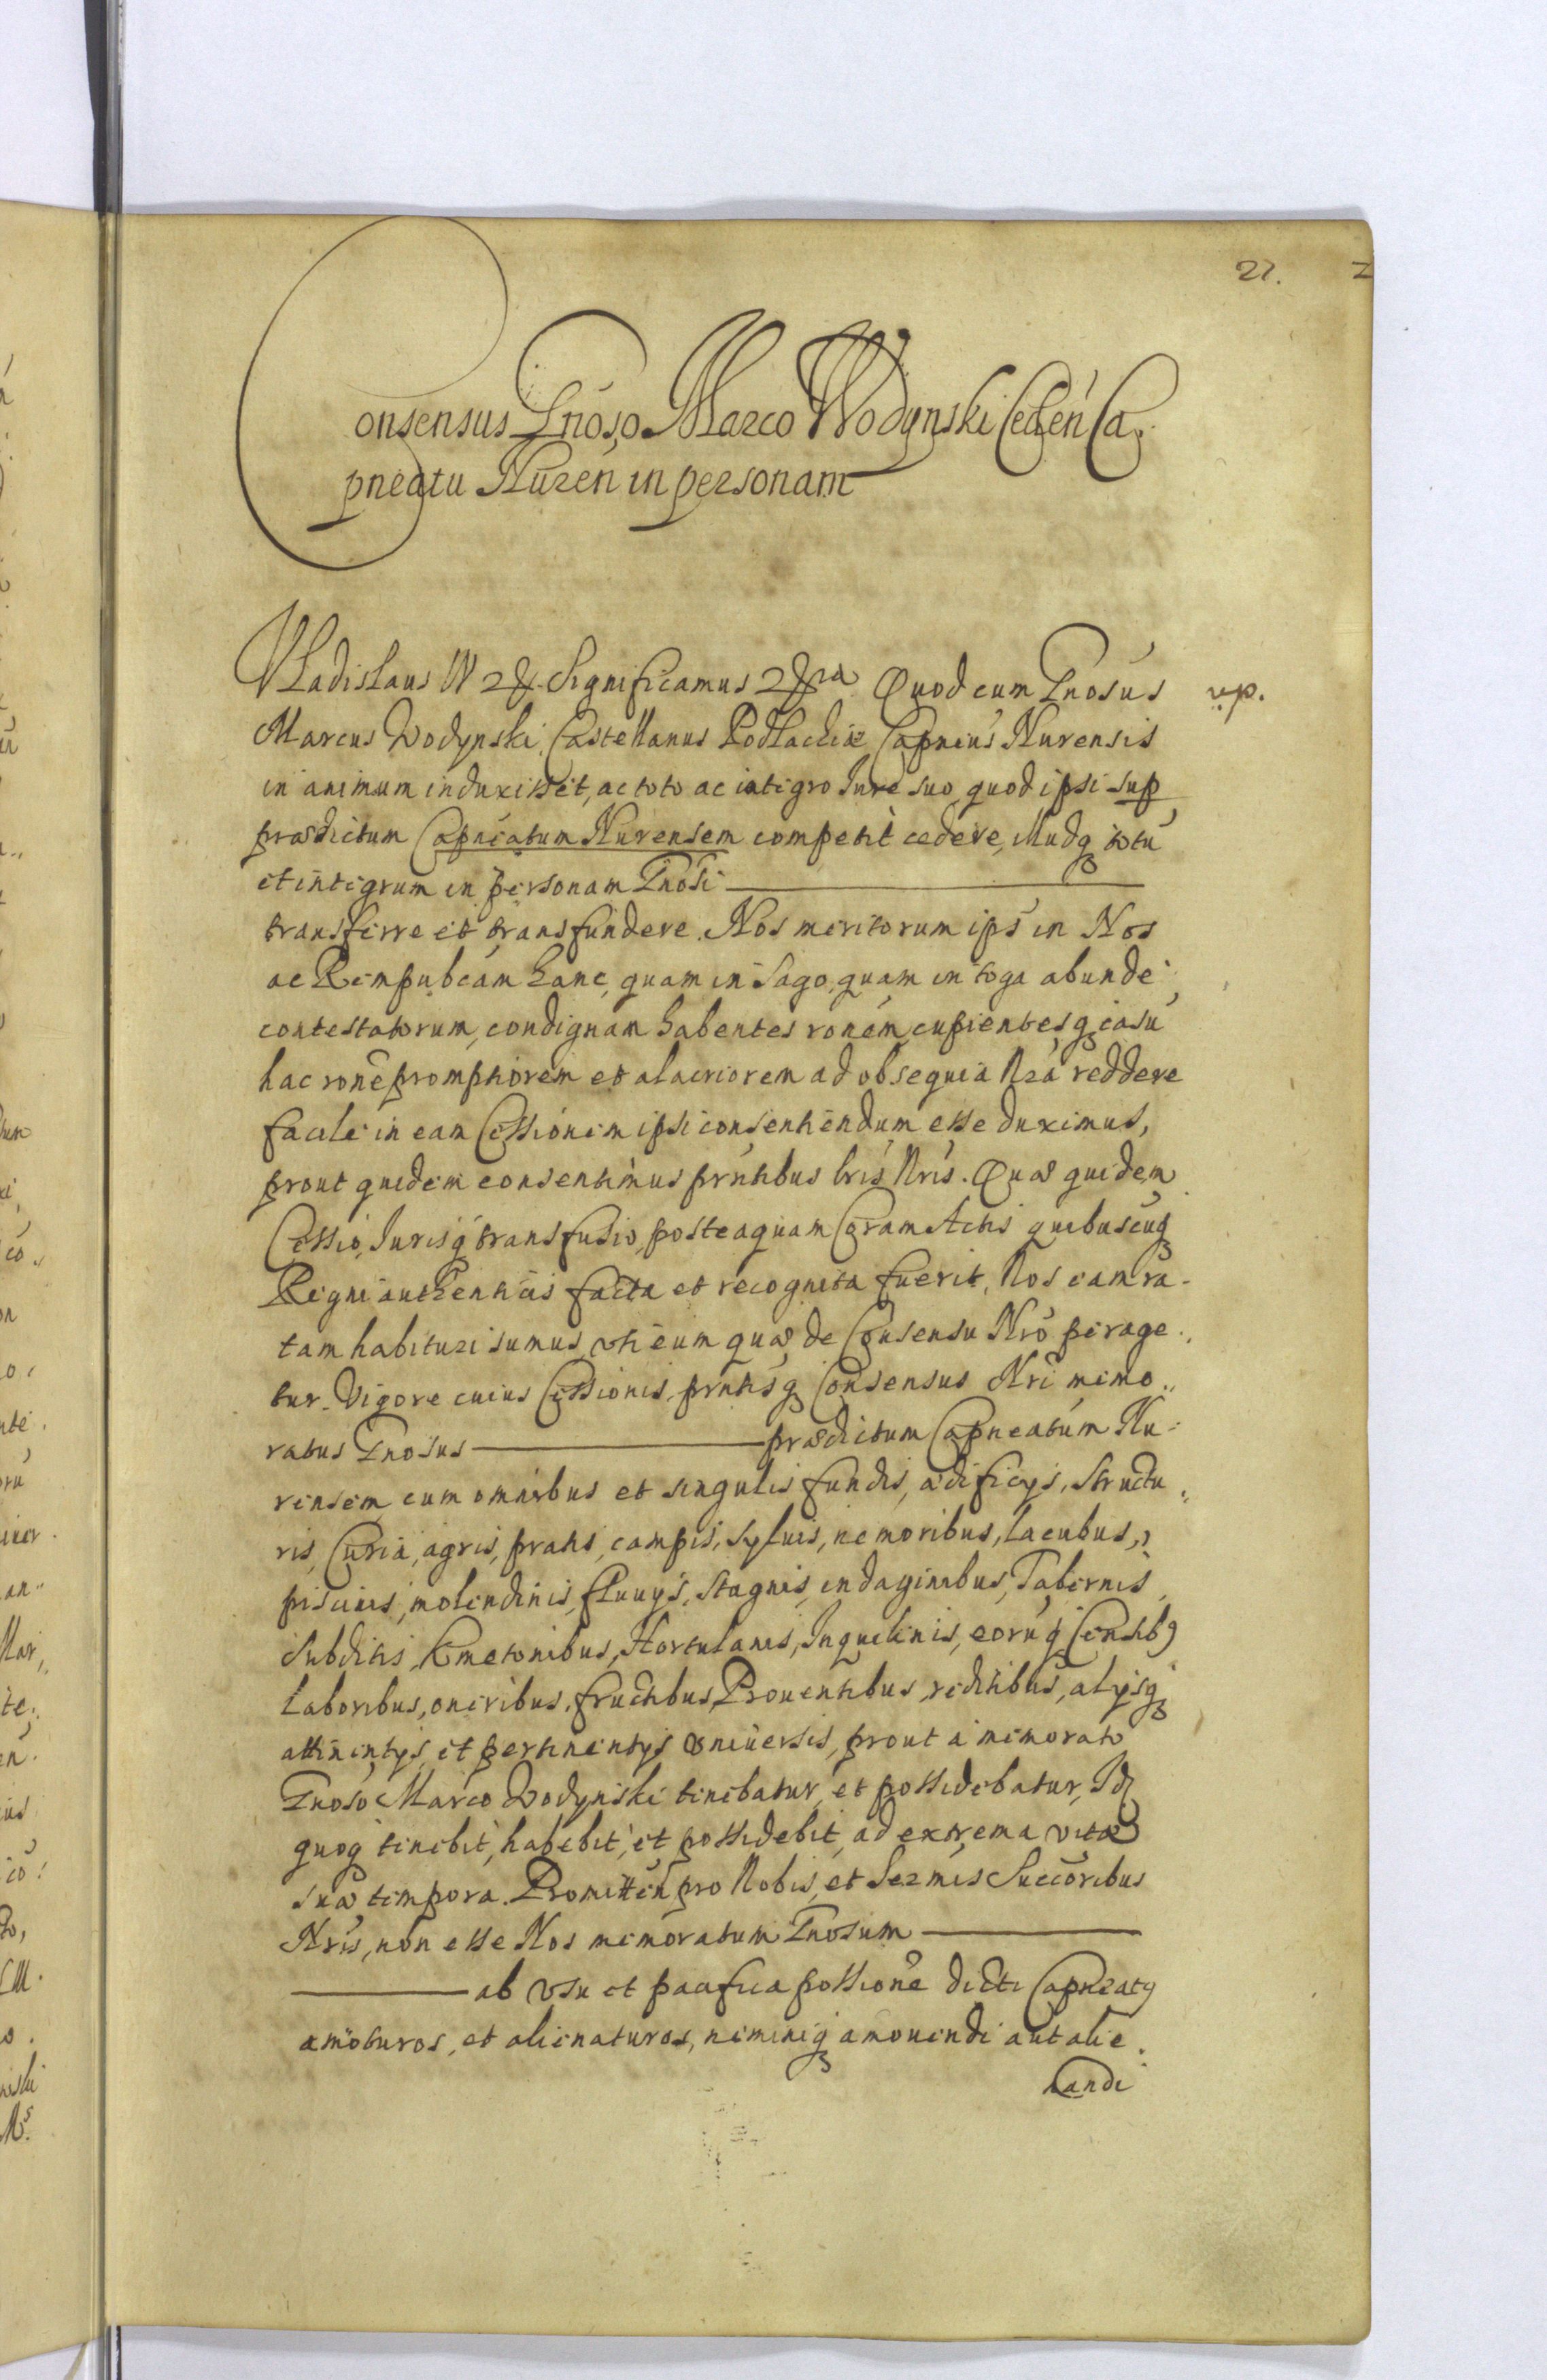 27. Z
Consensus Gnoso Marco Wodynski Ceden Ca,,
pneatu Nuren in personam
Vladislaus IV etc. Significamus etc.ra Quod cum Gnosus v.p.
Marcus Wodynski, Castellanus Podlachiæ Capneus Nurensis
in animum induxisset, ac toto ac integro Jure suo, quod ipsi sup
prædictum Capneatum Nurensem competit cedere, illudq totu
et integrum in personam Gnosi
transferre et transfundere. Nos meritorum ips in Nos
ac Rempubcam hanc, quam in Sago, quam in toga abunde
contestatorum, condignam habentes ronem, cupientesq casu
hac rone promptiorem et alacriorem ad obsequia Nra reddere
facile in eam Cessionem ipsi consentiendum esse duximus,
prout quidem consentimus prntibus lris Nris. Quæ quidem
Cessio, Jurisq transfusio, posteaquam Coram Actis quibuscuq
Regni authenticis facta et recognita fuerit, Nos eam ra-
tam habituri sumus, uti cum quæ de Consensu Nro perage,,
tur. Vigore cuius Cessionis, prntisq Consensus Nri memo,,
ratus Gnosus prædictum Capneatum Nu-
rensem cum omnibus et singulis fundis, ædificys, structu,,
ris, Curia, agris, pratis, campis, syluis, nemoribus, lacubus,
piscinis, molendinis, fluuys, stagnis, indaginibus, Tabernis,
Subditis, Kmetonibus, Hortulanis, Inquilinis, eoruq Censib9
laboribus, oneribus, fructibus, Prouentibus, reditibus, alysq
attinentys, et pertinentys uniuersis, prout a memorato
Gnoso Marco Wodynski tenebatur, et possidebatur, Id
quoq tenebit, habebit, et possidebit, ad extrema vitæ
suæ tempora. Promitten pro Nobis, et Sermis Succoribus
Nris, non esse Nos memoratum Gnosum
ab usu et pacifica possione dicti Capneat9
amoturos, et alienaturos, neminiq amouendi aut alie,,
nandi